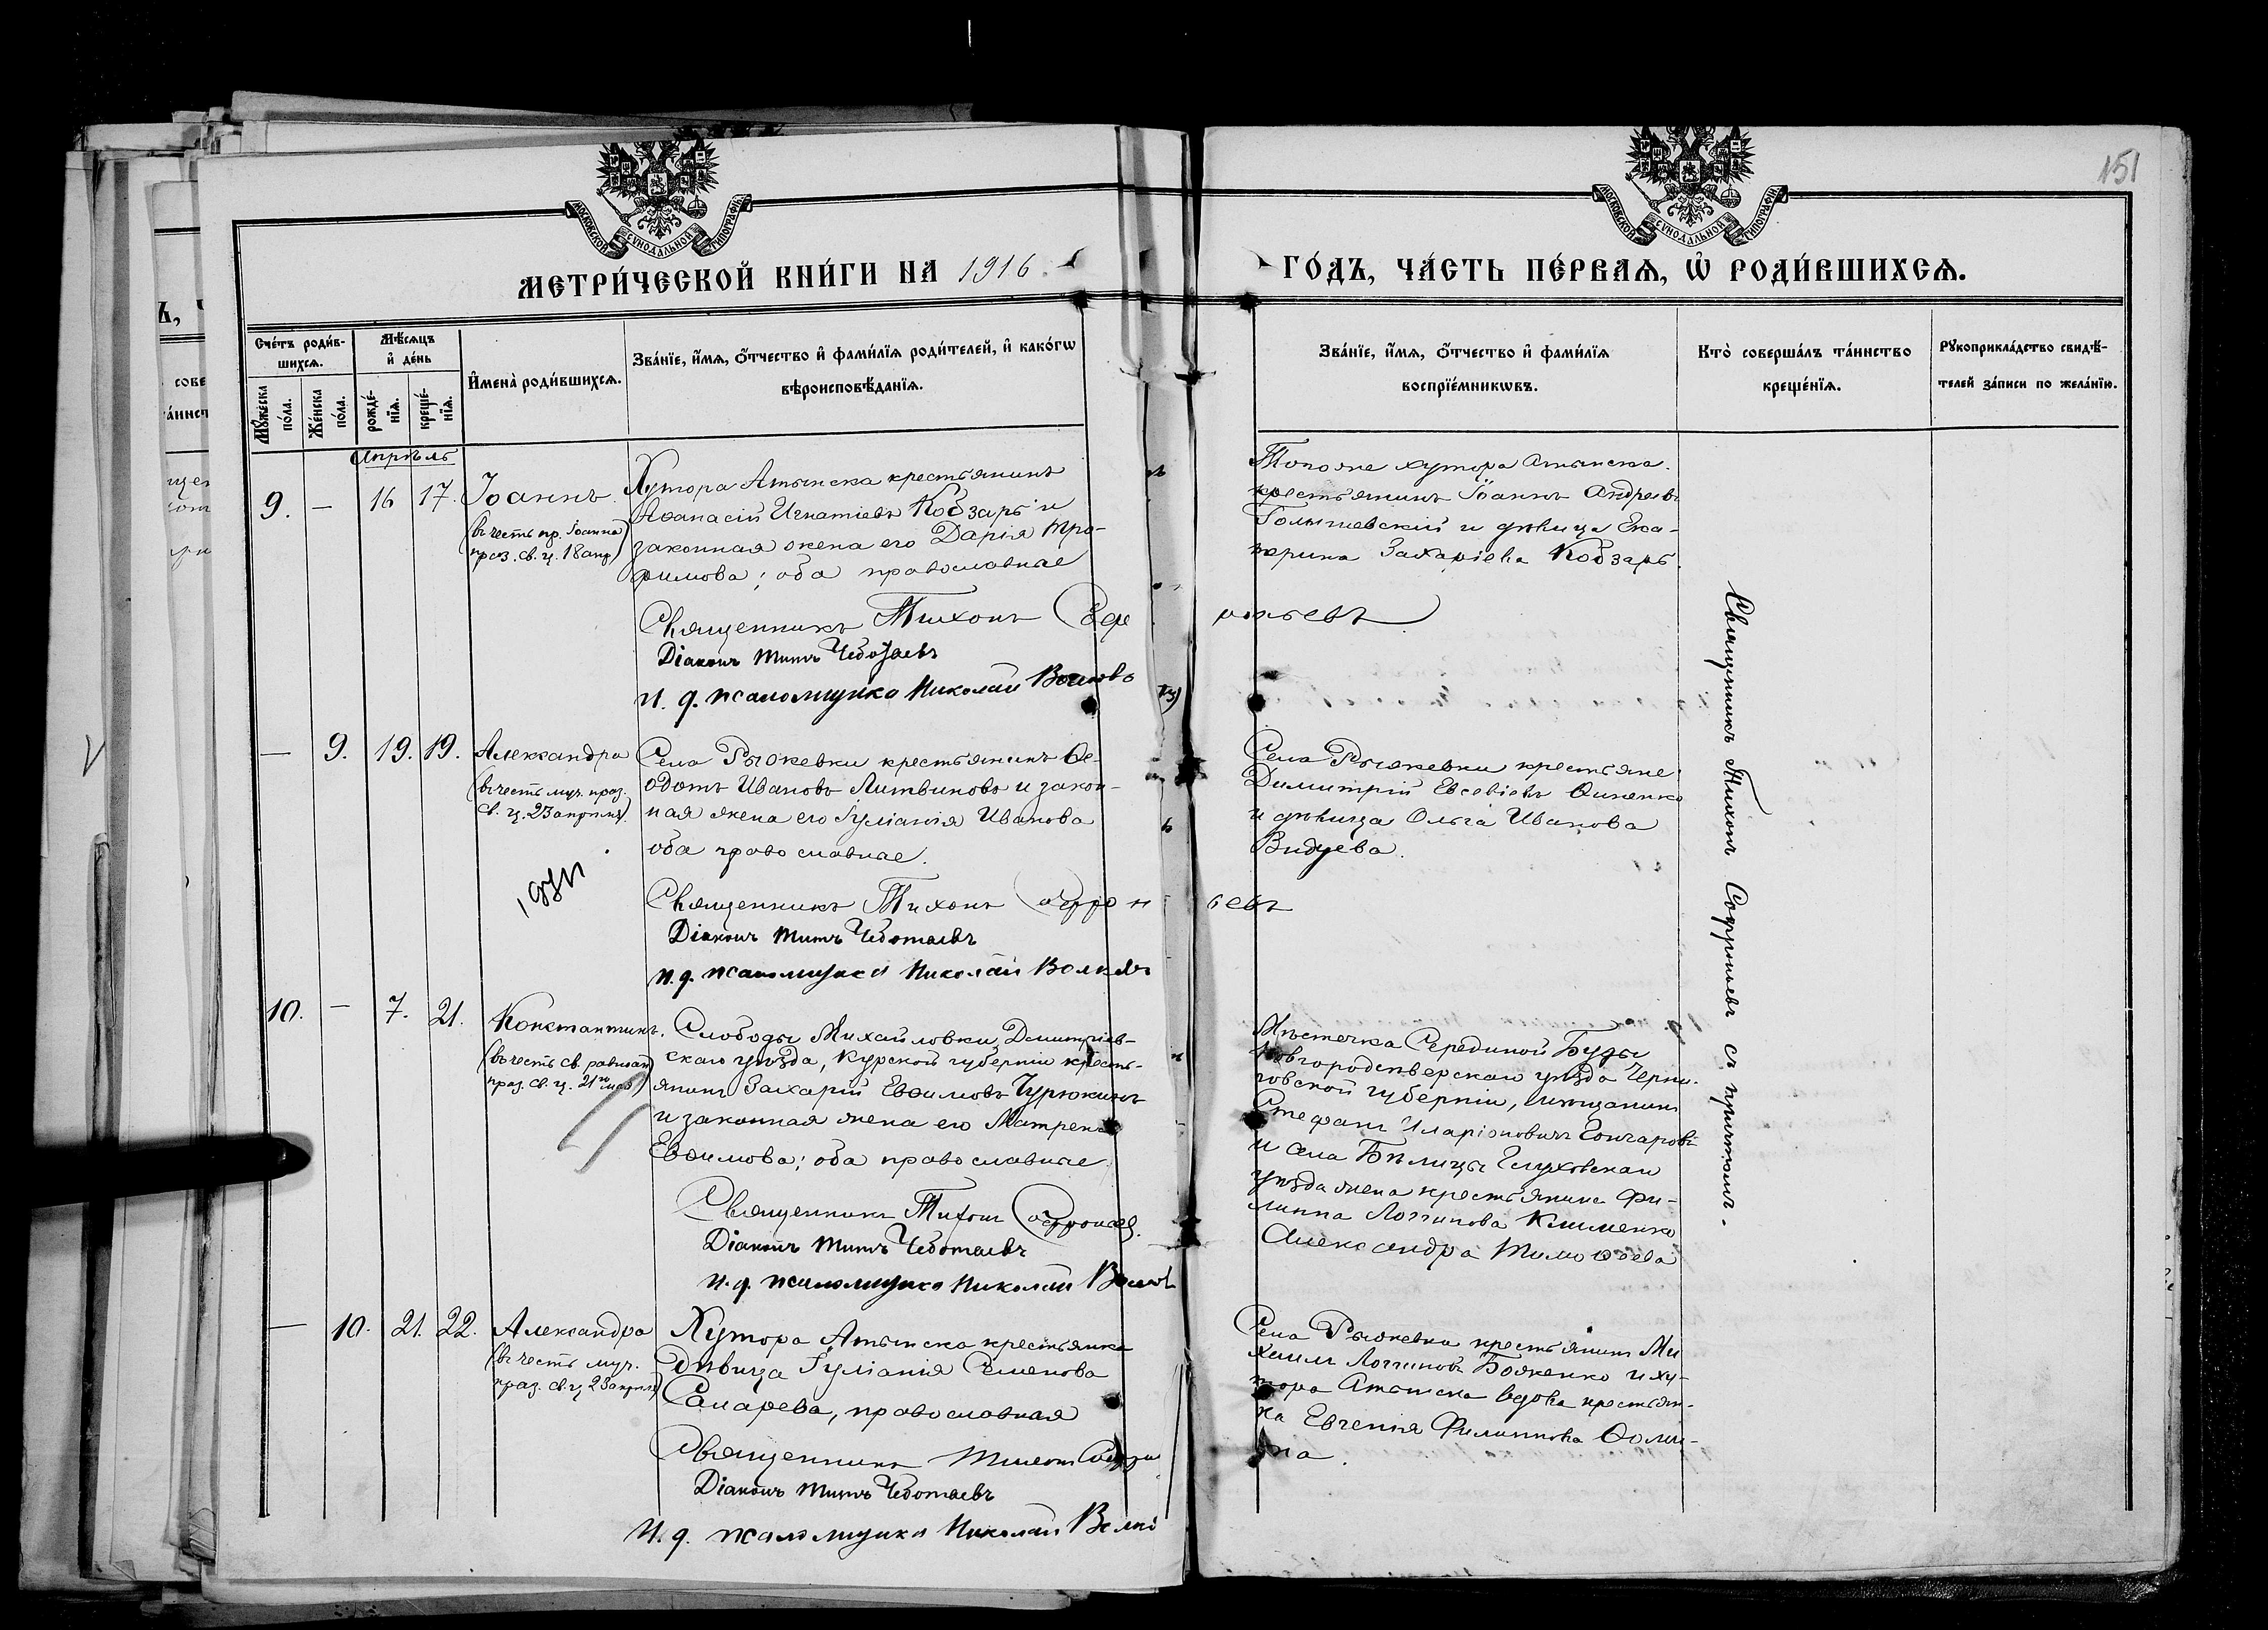 151
МОСКОВСКОЙ СѴНОДАЛЬНОЙ ТИПОГРАФІИ
МОСКОВСКОЙ СѴНОДАЛЬНОЙ ТИПОГРАФІИ
МЕТРИ́ЧЕСКОЙ КНИ́ГИ НА 1916
ГО́ДЪ, ЧА́СТЬ ПЕ́РВАѦ, Ѡ҆ РОДИ́ВШИХСѦ.
Сче́тъ роди́в-
шихсѧ.
Мꙋ́жеска
по́ла.
Же́нска
по́ла.
Мѣ́сѧцъ
и҆ де́нь
рожде́-
нїѧ.
креще́-
нїѧ.
И҆мена̀ роди́вшихсѧ.
Зва́нїе, и҆́мѧ, ѻ҆́тчество и҆ фами́лїѧ роди́телей, и҆ како́гѡ
вѣроисповѣ́данїѧ.
Зва́нїе, и҆́мѧ, ѻ҆́тчество и҆ фами́лїѧ
воспрїе́мникѡвъ.
Кто̀ соверша́лъ та́инство
креще́нїѧ.
Рꙋкоприкла́дство свидѣ́-
телей за́писи по жела́нїю.
Апрѣль
9. — 16 17. Іоаннъ.
(въ честь пр. Іоанна
праз. св. ц. 18 апр)
Хутора Атынска крестьянинъ
Аѳанасій Игнатіевъ Кобзарь и
законная жена его Дарія Тро-
фимова; оба православные
Священникъ Тихонъ Софроньевъ
Діаконъ Титъ Чеботаевъ
И. д. псаломщика Николай Волковъ
Того же хутора Атынска
крестьянинъ Іоаннъ Андреевъ
Голышевскій и дѣвица Ека-
терина Захаріева Кобзарь.
— 9. 19. 19. Александра
(въ честь муч. праз.
св. ц. 23 апрѣля).
Села Рыжевки крестьянинъ Ѳе-
одотъ Ивановъ Литвиновъ и закон-
ная жена его Іуліанія Иванова
оба православные.
Священникъ Тихонъ Софроньевъ
Діаконъ Титъ Чеботаевъ
И. д. псаломщика Николай Волковъ
Села Рыжевки крестьяне
Димитрій Евсевіевъ
и дѣвица Ольга Иванова
Видуева.
10. — 7. 21. Константинъ.
(въ честь св. равноап
праз. св. ц. 21го мая)
Слободы Михайловки, Дмитріев-
скаго уѣзда, Курской губерніи кресть-
янинъ Захарій Евѳимовъ Чурюкинъ
и законная жена его Матрена
Евѳимова; оба православные
Священникъ Тихонъ Софроньевъ
Діаконъ Титъ Чеботаевъ
И. д. псаломщика Николай Волковъ
Мѣстечка Середины Буды
Новгородсѣверскаго уѣзда Черни-
говской губерніи, мѣщанинъ
Стефанъ Иларіоновичъ Гончаровъ
и села Бѣлицы Глуховскаго
уѣзда жена крестьянина Фи-
липпа Логгинова Клименко
Александра Тимоѳеева
— 10. 21. 22. Александра
(въ честь муч.
праз. св. ц 23 апрѣля)
Хутора Атынска крестьянка
дѣвица Іуліанія Семенова
православная
Священникъ Тихонъ Софро
Діаконъ Титъ Чеботаевъ
И. д. псаломщика Николай Волко
Села Рыжевки крестьянинъ Ми
хаилъ Логгиновъ Боженко и ху-
тора Атынска вдова крестьян-
ка Евгенія Филиппова Ѳоми-
на.
Священникъ Тихонъ Софроньевъ съ причтомъ.